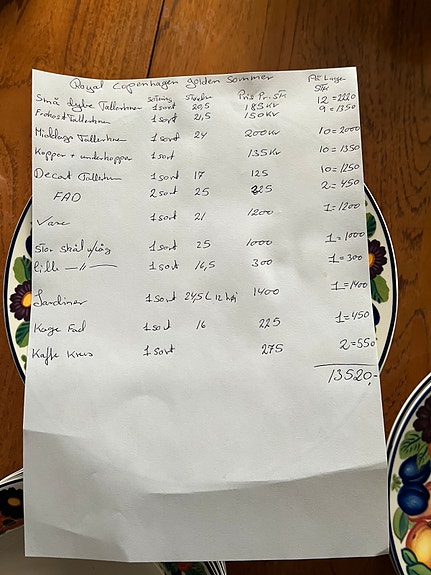 Royal Copenhagen golden sommer
sotring Størelse Pris Pr. Stk På Lager Stk
Små dybe Tallerkner 1 sort 20,5 185 Kr 12 = 2220
Frokost Tallerkner 1 sort 21,5 150 Kr 9 = 1350
Middags Tallerkner 1 sort 24 200 Kr 10 = 2000
Kopper + underkopper 1 sort 135 Kr 10 = 1350
Desert Tallerkn 1 sort 17 125 10 = 1250
FAD 2 sort 25 225 2 = 450
Vase 1 sort 21 1200 1 = 1200
stor skål u/låg 1 sort 25 1000 1 = 1000
lille —"— 1 sort 16,5 300 1 = 300
Jardiner 1 sort 24,5 L 12 høj 1400 1 = 1400
Kage Fad 1 sort 16 225 1 = 450
Kaffe Krus 1 sort 275 2 = 550
13520,-